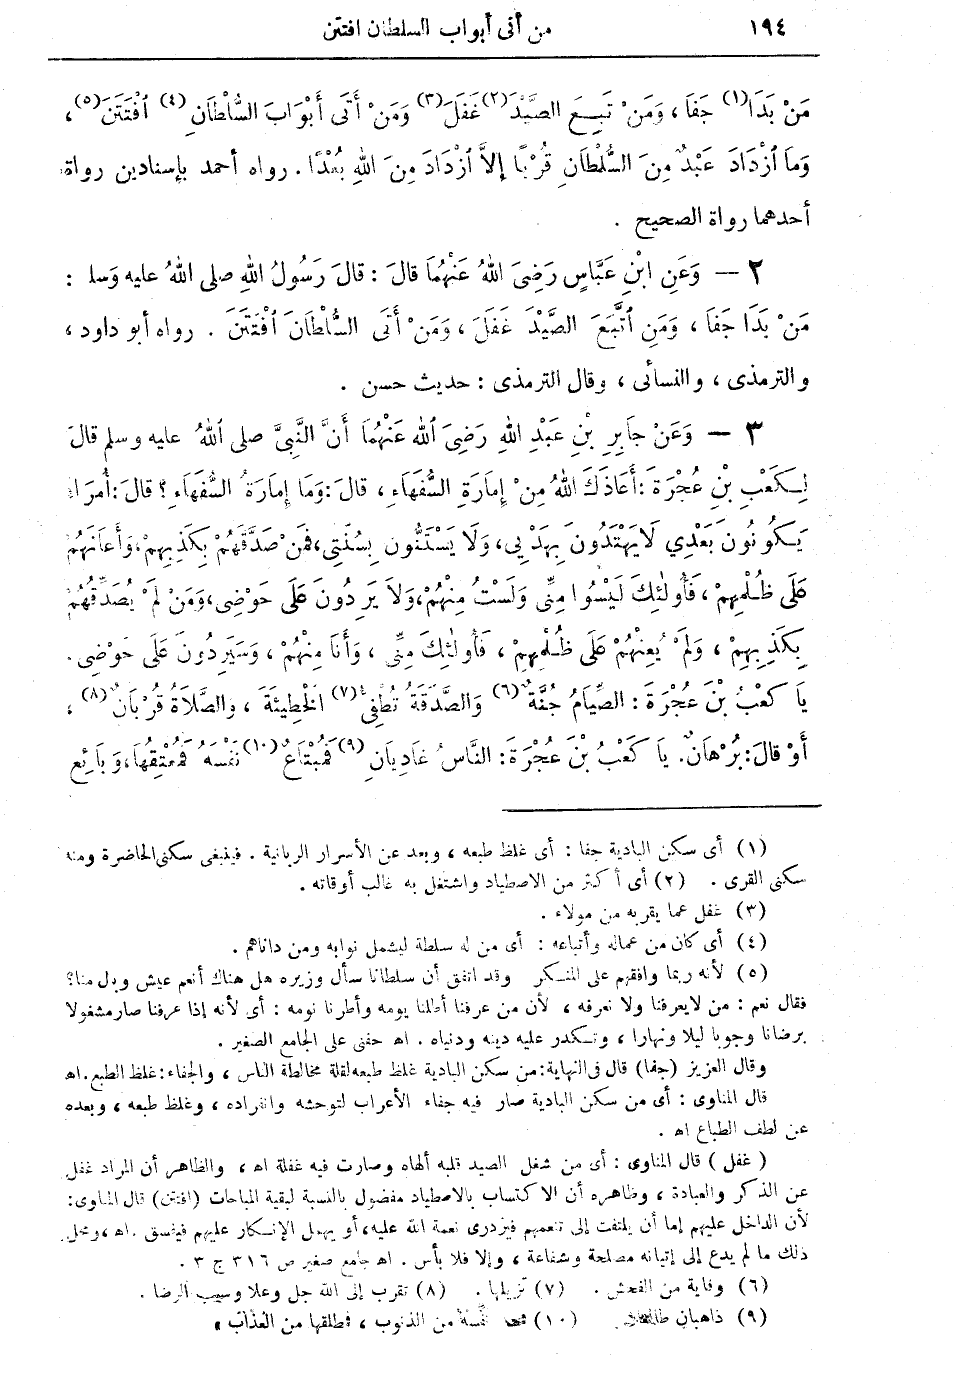 ١٩٤ من أتى أبواب السلطان افتتن
مَنْ بَدَا (١) جَفَا ، وَمَنْ تَبِعَ الصَّيْدَ (٢) غَفَلَ (٣) وَمَنْ أَتَى أَبْوَابَ السُّلْطَانِ (٤) ٱفْتَتَنَ (٥) ،
وَمَا ٱزْدَادَ عَبْدٌ مِنَ السُّلْطَانِ قُرْبًا إِلَّا ٱزْدَادَ مِنَ اللهِ بُعْدًا . رواه أحمد بإسنادين رواة
أحدهما رواة الصحيح .
٢ — وَعَنِ ابْنِ عَبَّاسٍ رَضِيَ اللهُ عَنْهُمَا قَالَ : قَالَ رَسُولُ اللهِ صلى اللهُ عليه وَسلم :
مَنْ بَدَا جَفَا ، وَمَنِ ٱتَّبَعَ الصَّيْدَ غَفَلَ ، وَمَنْ أَتَى السُّلْطَانَ ٱفْتَتَنَ . رواه أبو داود ،
والترمذى ، والنسائى ، وقال الترمذى : حديث حسن .
٣ — وَعَنْ جَابِرِ بْنِ عَبْدِ اللهِ رَضِيَ ٱللهُ عَنْهُمَا أَنَّ النَّبِيَّ صلى ٱللهُ عليه وسلم قَالَ
لِكَعْبِ بْنِ عُجْرَةَ : أَعَاذَكَ اللهُ مِنْ إِمَارَةِ السُّفَهَاءِ ، قَالَ : وَمَا إِمَارَةُ السُّفَهَاءِ ؟ قَالَ : أُمَرَاءُ
يَكُونُونَ بَعْدِي لَا يَهْتَدُونَ بِهَدْيِي ، وَلَا يَسْتَنُّونَ بِسُنَّتِي ، فَمَنْ صَدَّقَهُمْ بِكَذِبِهِمْ ، وَأَعَانَهُمْ
عَلَى ظُلْمِهِمْ ، فَأُولٰئِكَ لَيْسُوا مِنِّي وَلَسْتُ مِنْهُمْ ، وَلَا يَرِدُونَ عَلَى حَوْضِي ، وَمَنْ لَمْ يُصَدِّقْهُمْ
بِكَذِبِهِمْ ، وَلَمْ يُعِنْهُمْ عَلَى ظُلْمِهِمْ ، فَأُولٰئِكَ مِنِّي ، وَأَنَا مِنْهُمْ ، وَسَيَرِدُونَ عَلَى حَوْضِي .
يَا كَعْبُ بْنَ عُجْرَةَ : الصِّيَامُ جُنَّةٌ (٦) وَالصَّدَقَةُ تُطْفِئُ (٧) الْخَطِيئَةَ ، وَالصَّلَاةُ قُرْبَانٌ (٨) ،
أَوْ قَالَ : بُرْهَانٌ . يَا كَعْبُ بْنَ عُجْرَةَ : النَّاسُ غَادِيَانِ (٩) فَمُبْتَاعٌ (١٠) نَفْسَهُ فَمُعْتِقُهَا ، وَبَائِعٌ
(١) أى سكن البادية جفا : أى غلظ طبعه ، وبعد عن الأسرار الربانية . فينبغى سكنى الحاضرة ومنه
سكنى القرى . (٢) أى أكثر من الاصطياد واشتغل به غالب أوقاته .
(٣) غفل عما يقربه من مولاه .
(٤) أى كان من عماله وأتباعه : أى من له سلطة ليشمل نوابه ومن داناهم .
(٥) لأنه ربما وافقهم على المنكر وقد اتفق أن سلطانا سأل وزيره هل هناك أنعم عيش وبال منا؟
فقال نعم : من لايعرفنا ولا نعرفه ، لأن من عرفنا أطلنا يومه وأطرنا نومه : أى لأنه إذا عرفنا صار مشغولا
برضانا وجوبا ليلا ونهارا ، وتكدر عليه دينه ودنياه . اهـ حفنى على الجامع الصغير .
وقال العزيز (جفا) قال فى النهاية : من سكن البادية غلظ طبعه لقلة مخالطة الناس ، والجفاء : غلظ الطبع . اهـ
قال المناوى : أى من سكن البادية صار فيه جفاء الأعراب لتوحشه وانفراده ، وغلظ طبعه ، وبعده
عن لطف الطباع اهـ .
( غفل ) قال المناوى : أى من شغل الصيد قلبه ألهاه وصارت فيه غفلة اهـ ، والظاهر أن المراد غفل
عن الذكر والعبادة ، وظاهره أن الاكتساب بالاصطياد مفضول بالنسبة لبقية المباحات (افتتن) قال المناوى :
لأن الداخل عليهم إما أن يلتفت إلى تنعمهم فيزدرى نعمة الله عليه ، أو يهمل الإنكار عليهم فيفسق . اهـ ، ومحل
ذلك ما لم يدع إلى إتيانه مصلحة وشفاعة ، وإلا فلا بأس . اهـ جامع صغير ص ٣١٦ ج ٣ .
(٦) وقاية من الفحش . (٧) تزيلها . (٨) تقرب إلى الله جل وعلا وسبب الرضا .
(٩) ذاهبان (١٠) نفسه من الذنوب ، فطلقها من العذاب .